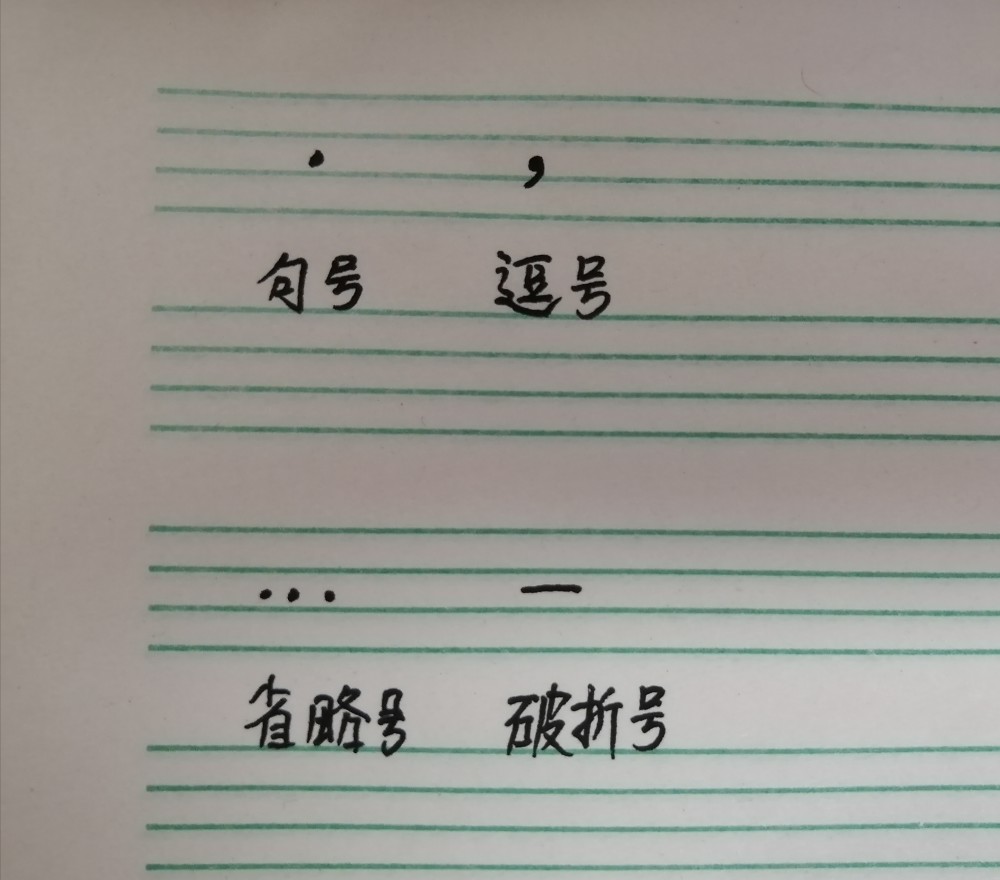 . ,
句号 逗号
... —
省略号 破折号